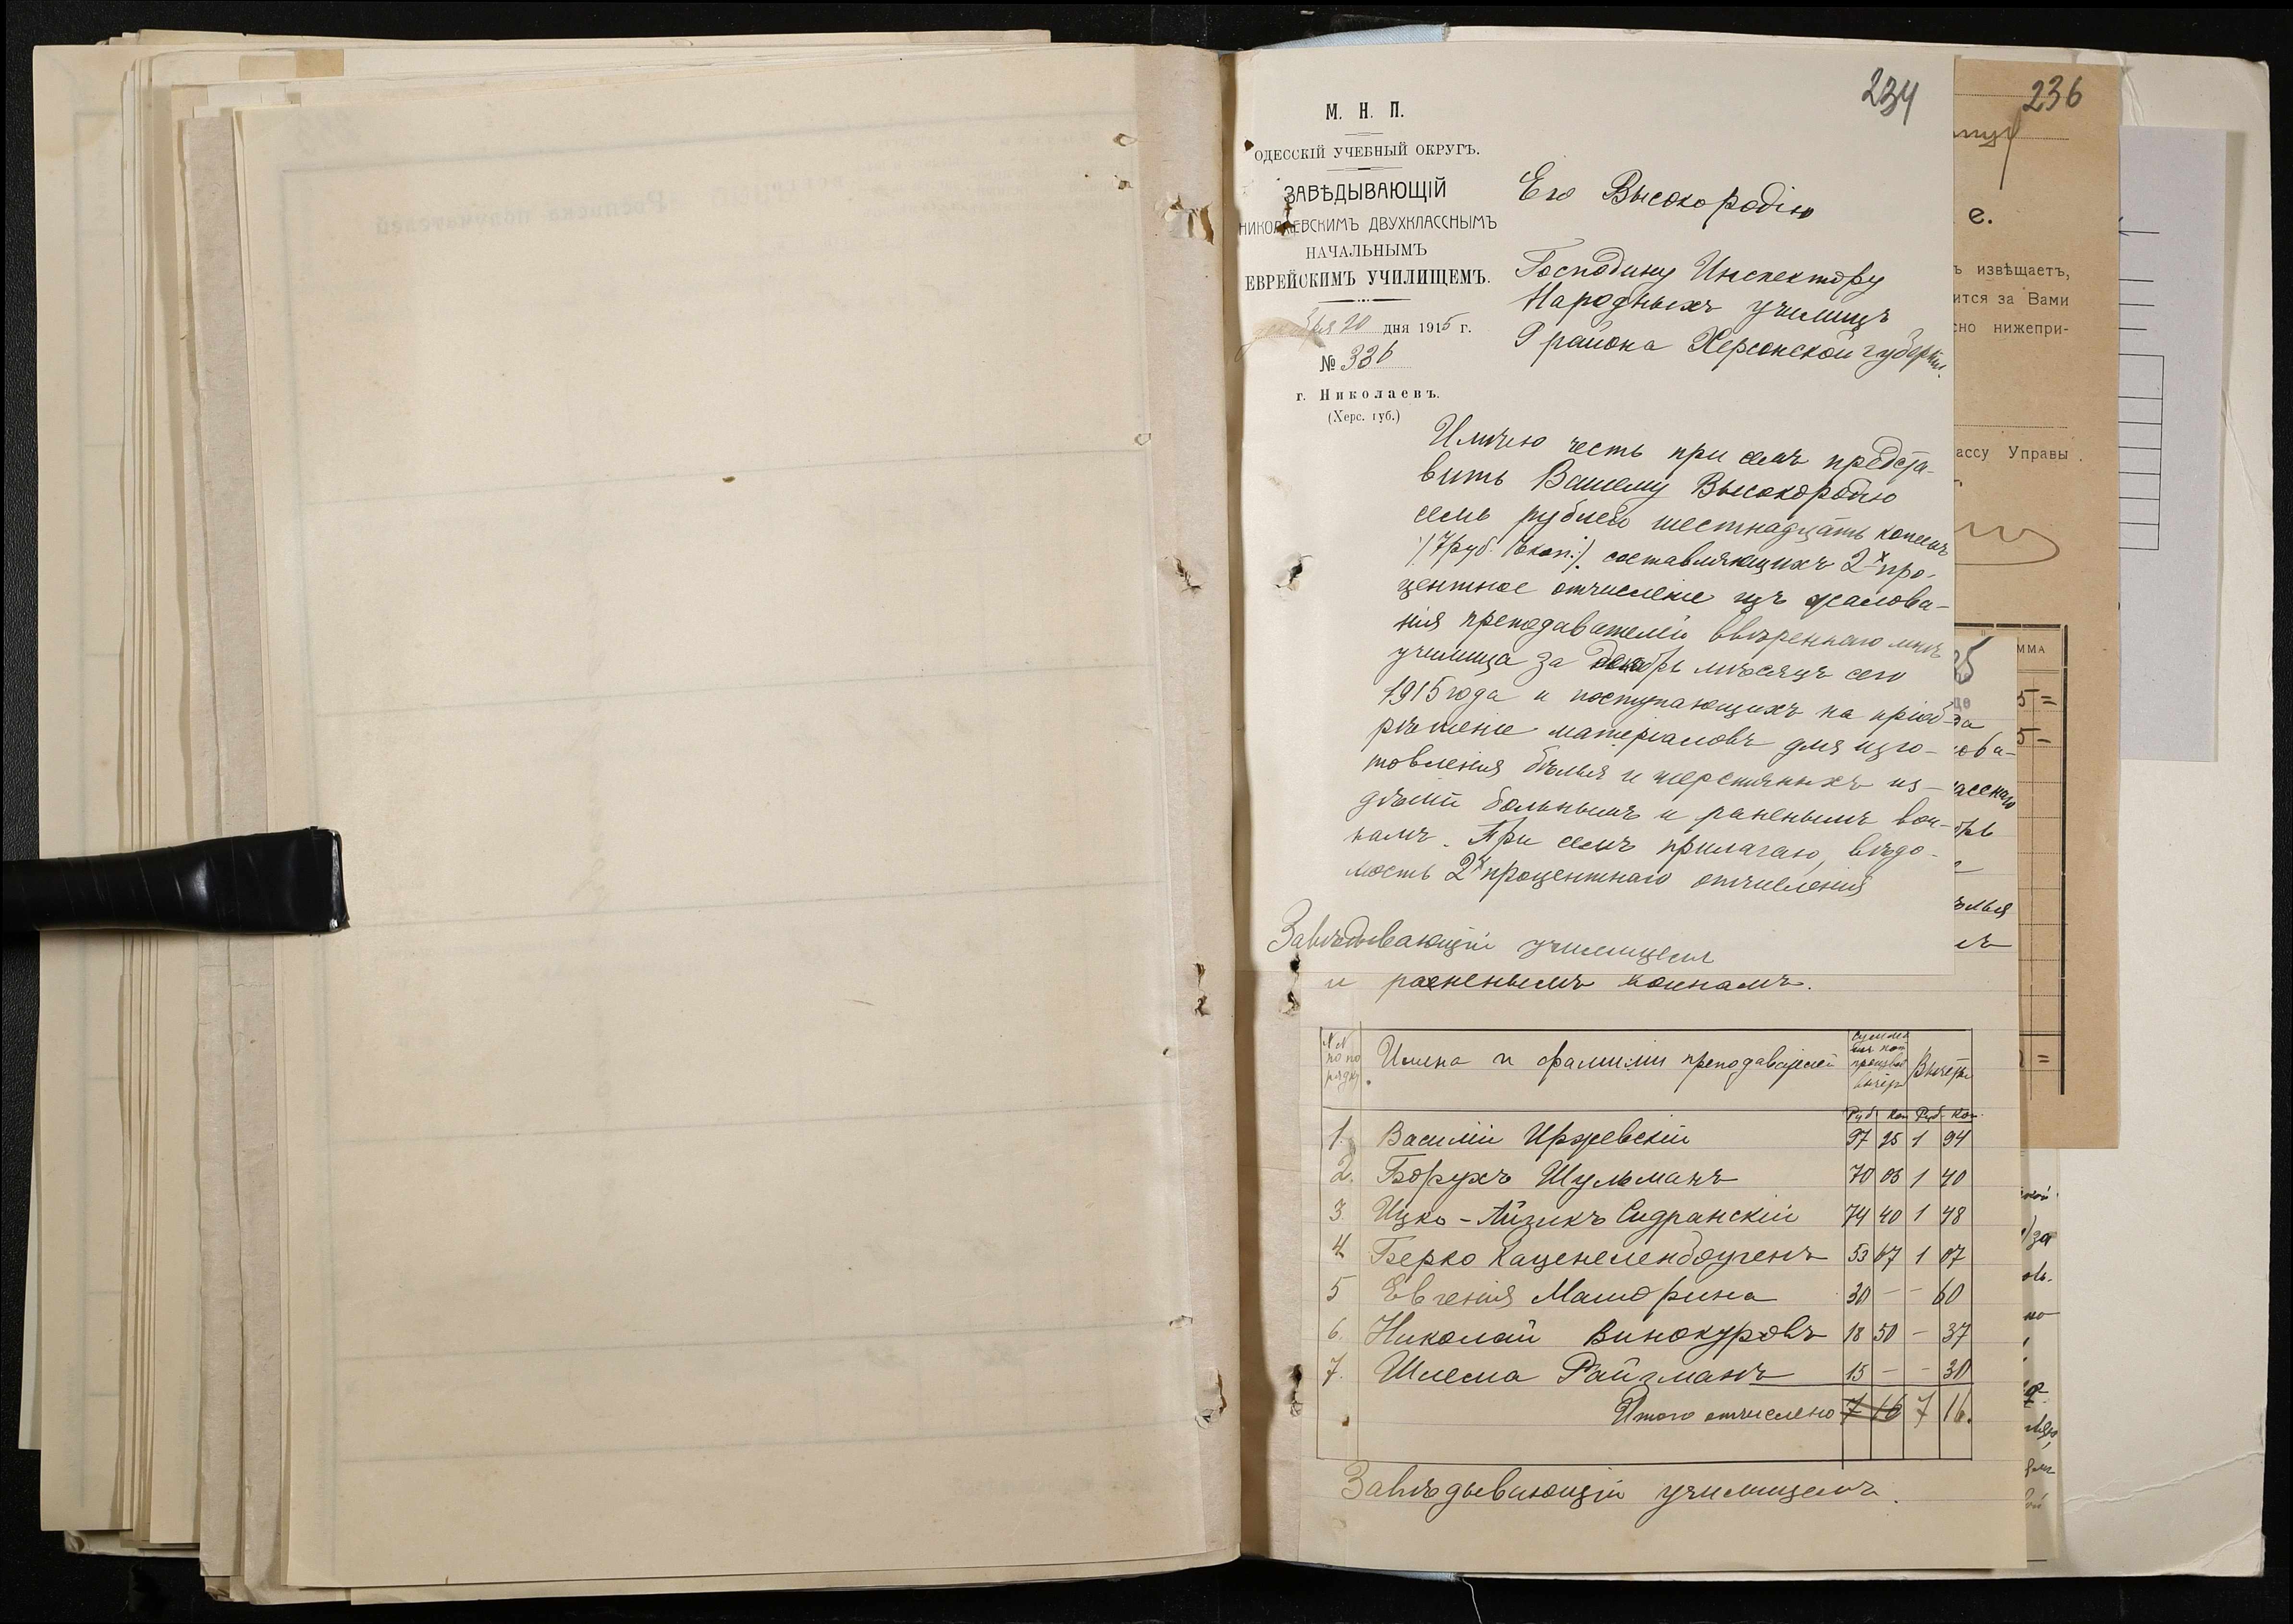 234
М. Н. П.
ОДЕССКІЙ УЧЕБНЫЙ ОКРУГЪ.
ЗАВѢДЫВАЮЩІЙ
НИКОЛАЕВСКИМЪ ДВУХКЛАССНЫМЪ
НАЧАЛЬНЫМЪ
ЕВРЕЙСКИМЪ УЧИЛИЩЕМЪ.
20 дня 1915 г.
№ 336
г. Николаевъ.
(Херс. губ.)
Его Высокородію
Господину Инспектору
Народныхъ училищъ
района Херсонской губерніи.
Имѣю честь при семъ предста-
вить Вашему Высокородію
семь рублей шестнадцать копеекъ
/7 руб. 16 коп./ составляющихъ 2х про-
центное отчисленіе изъ жалова-
нія преподавателей ввѣреннаго мнѣ
училища за декабрь мѣсяцъ сего
1915 года и поступающихъ на пріоб-
рѣтеніе матеріаловъ для изго-
товленія бѣлья и шерстяныхъ из-
дѣлій больнымъ и раненымъ вои-
намъ. При семъ прилагаю, вѣдо-
мость 2х процентнаго отчисленія
Завѣдывающій училищемъ
и раненымъ воинамъ.
№№ по по рядку
Имена и фамиліи преподавателей
Вычеты
Руб. Коп. Руб. Коп.
1. Василій Иржевскій 97 25 1 94
2. Борухъ Шульманъ 70 05 1 40
3 Ицко-Айзикъ Сидранскій 74 40 1 48
4 Берко Каценеленбоугенъ 53 67 1 07
5 Евгенія Машорина 30 — — 60
6. Николай Винокуровъ 18 50 — 37
7. Шлема Райзманъ 15 — — 30
Итого отчислено 7 16 7 16.
Завѣдывающій училищемъ.
236
е.
ъ извѣщаетъ,
ится за Вами
сно нижепри-
ассу Управы.
ММА
5 =
5 —
=